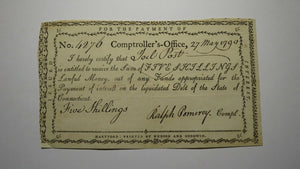 FOR THE PAYMENT OF
INTEREST
No. 4276 Comptroller's-Office, 27 May 179
I hereby certify that Joel Post
is entitled to receive the Sum of FIVE SHILLINGS
Lawful Money, out of any Funds appropriated for the
Payment of interest on the liquidated Debt of the State of
Connecticut.
Five Shillings
Ralph Pomeroy Compt.
HARTFORD: PRINTED BY HUDSON AND GOODWIN.